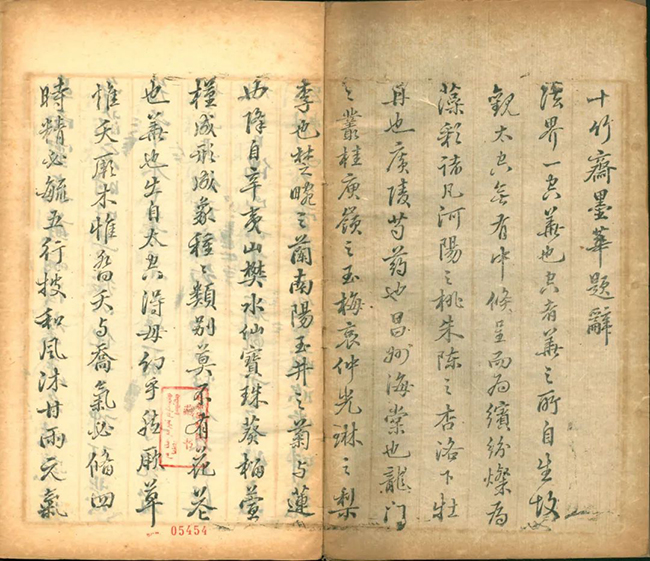 十竹齋墨華題辭
法界一空華也空者華之所自生故
觀太空無有中倏呈而為繽紛燦為
藻彩諸凡河陽之桃朱陳之杏洛下牡
丹也廣陵芍药也昌州海棠也龍门
之叢桂庾嶺之玉梅哀仲光琳之梨
季也楚畹之蘭南陽玉井之菊与蓮
降自辛夷山樊水仙寶珠葵榴萱
槿成形成象種々類别莫不有花花
也華也生自太空得毋幻乎然厥草
惟夭厥木惟喬夭与喬氣必脩四
時精必毓五行披和風沐甘雨元氣
05454